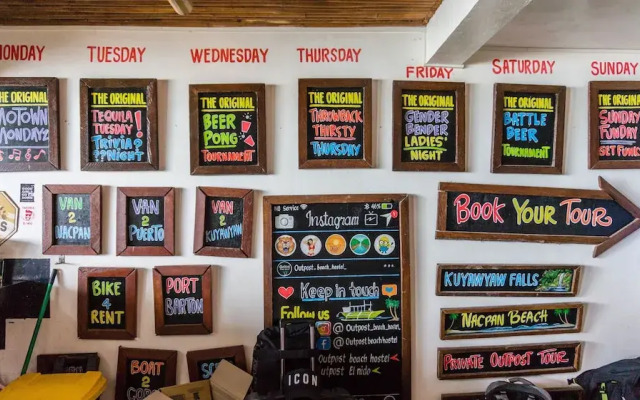 MONDAY
TUESDAY
WEDNESDAY
THURSDAY
FRIDAY
SATURDAY
SUNDAY
THE ORIGINAL
MOTOWN
MONDAYZ
THE ORIGINAL
TEQUILA
TUESDAY!
TRIVIA??
??NIGHT
THE ORIGINAL
BEER
PONG
TOURNAMENT
THE ORIGINAL
THROWBACK
THIRSTY
THURSDAY
THE ORIGINAL
GENDER
BENDER
LADIES'
NIGHT
THE ORIGINAL
BATTLE
BEER
TOURNAMENT
THE ORIGINAL
SUNDAY
FUNDAY
GET FUNKY
VAN
2
NACPAN
VAN
2
PUERTO
VAN
2
KUYAWYAW
BIKE
4
RENT
PORT
BARTON
BOAT
2
Service
40%
Instagram
Outpost_beach_hostel
Keep in touch
Follow us
@Outpost_beach_
@Outpost beach
Outpost beach hostel
outpost El nido
ICON
BOOK YOUR TOUR
KUYAWYAW FALLS
NACPAN BEACH
PRIVATE OUTPOST TOUR